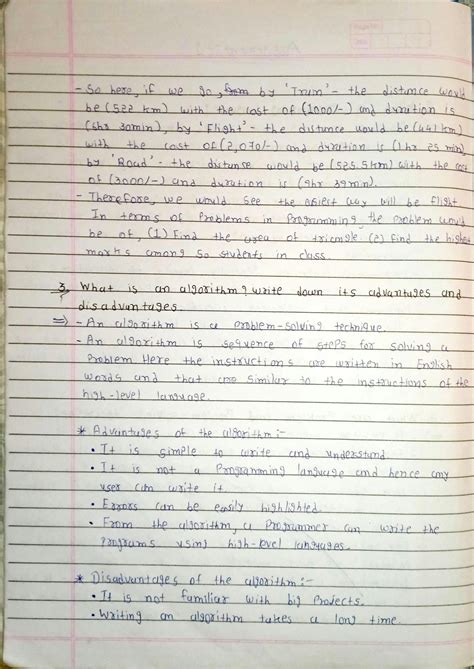 - So here, if we go, from by 'Train' - the distance would
be (522 km) with the cost of (1000/-) and duration is
(6hr 30min), by 'Flight' - the distance would be (441 km)
with the cost of (2,070/-) and duration is (1 hr 25 min)
by 'Road' - the distanse would be (525.5km) with the cost
of (3000/-) and duration is (9hr 39min).
- Therefore, we would see the easiest way will be flight
In terms of Problems in Programming the Problem would
be of, (1) Find the area of triangle (2) find the highest
marks among 50 students in class.
3. What is an algorithm? write down its advantages and
disadvantages.
=> - An algorithm is a problem-solving technique.
- An algorithm is sequence of steps for solving a
Problem. Here the instructions are written in English
words and that are similar to the instructions of the
high-level language.
* Advantages of the algorithm:-
• It is simple to write and understand.
• It is not a Programming language and hence any
user can write it.
• Errors can be easily highlighted.
• From the algorithm, a Programmer can write the
Programs using high-level languages.
* Disadvantages of the algorithm:-
• It is not familiar with big Projects.
• Writing an algorithm takes a long time.